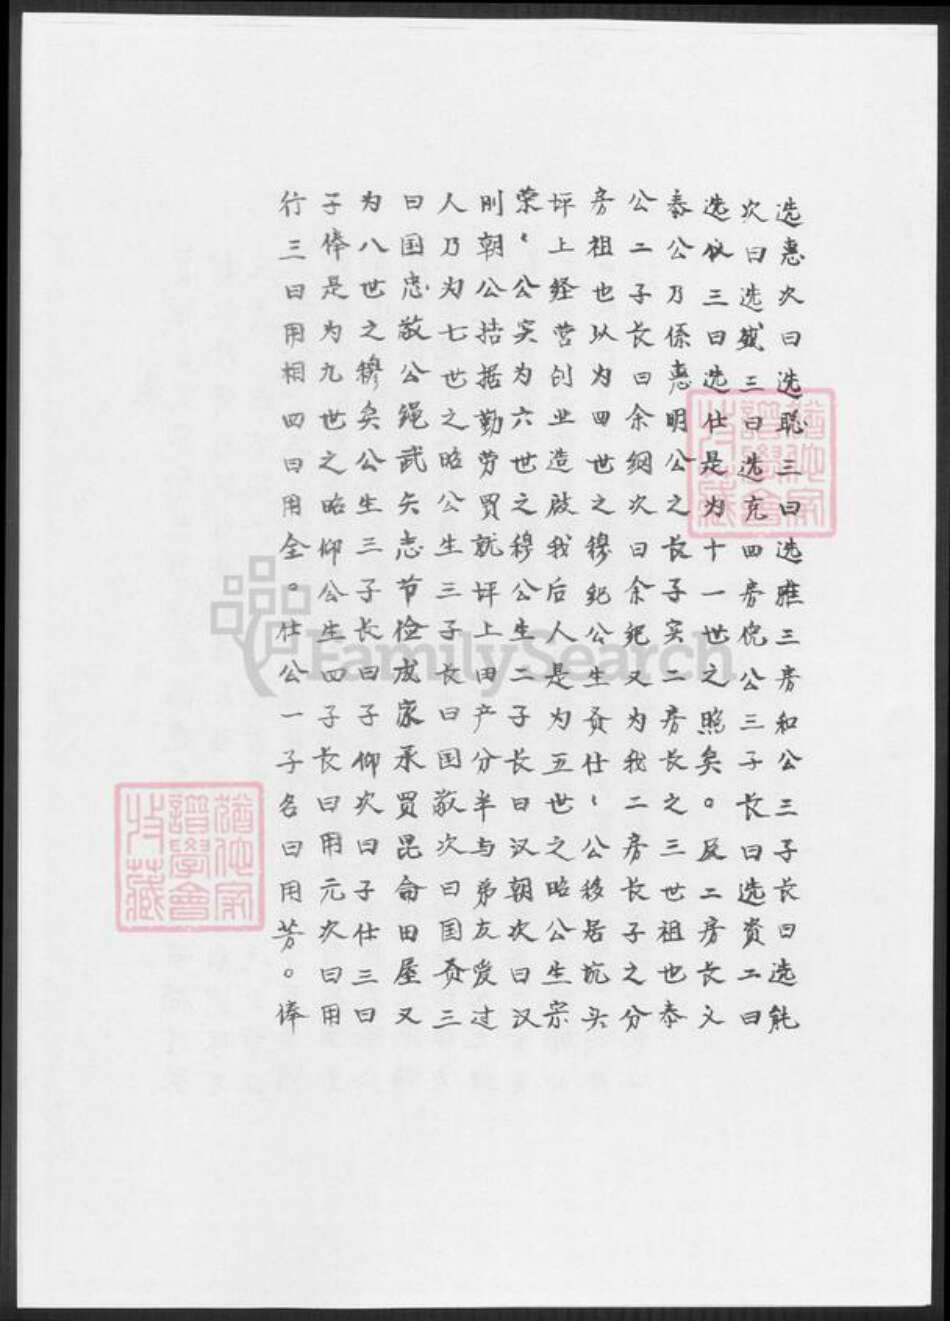 选惠次曰选聪三曰选雅三房和公三子长曰选能
次曰选盛三曰选充四房倪公三子长曰选资二曰
选仪三曰选仕是为十一世之照矣。反二房长文
泰公乃係惠明公之长子实二房长之三世祖也泰
公二子长曰余纲次曰余纪又为我二房长子之分
房祖也以为四世之穆纪公生贡仕、公移居坑头
坪上经营创业造啟我后人是为五世之昭公生宗
荣、公实为六世之穆公生二子长曰汉朝次曰汉
刚朝公拮据勤劳買就坪上田产分半与弟友爱过
人乃为七世之昭公生三子长曰国敬次曰国贡三
曰国忠敬公绳武矢志节俭成家承買昆侖田屋又
为八世之穆矣公生三子长曰子仰次曰子仕三曰
子俸是为九世之昭仰公生四子长曰用元次曰用
行三曰用相四曰用全。仕公一子名曰用芳。俸
猶他家譜學會收藏
猶他家譜學會收藏
FamilySearch